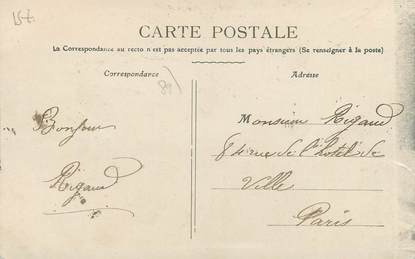 CARTE POSTALE
La Correspondance au recto n'est pas acceptée par tous les pays étrangers (Se renseigner à la poste)
Correspondance
Adresse
89
Bonjour
Rigaud
Monsieur Rigaud
rue de l'hotel de
Ville
Paris